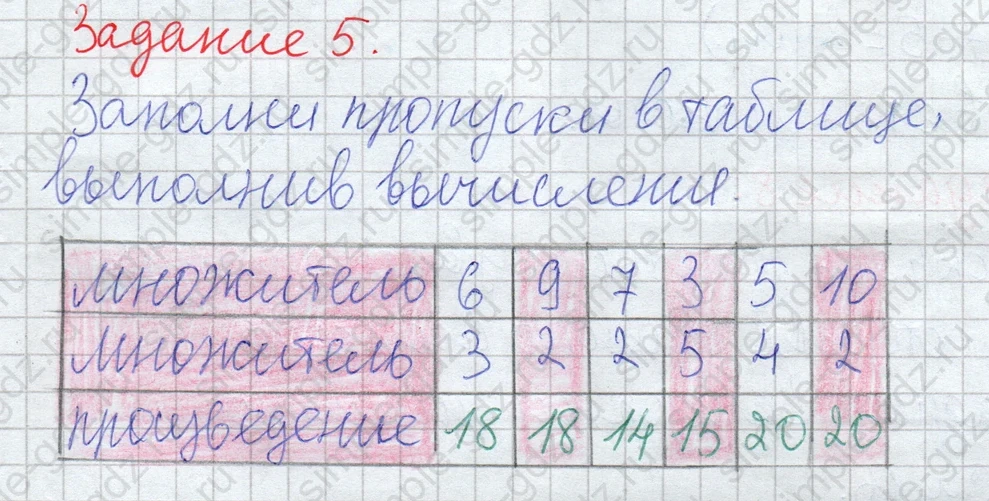 Задание 5.
Заполни пропуски в таблице,
выполнив вычисления.
множитель 6 9 7 3 5 10
множитель 3 2 2 5 4 2
произведение 18 18 14 15 20 20
simple-gdz.ru